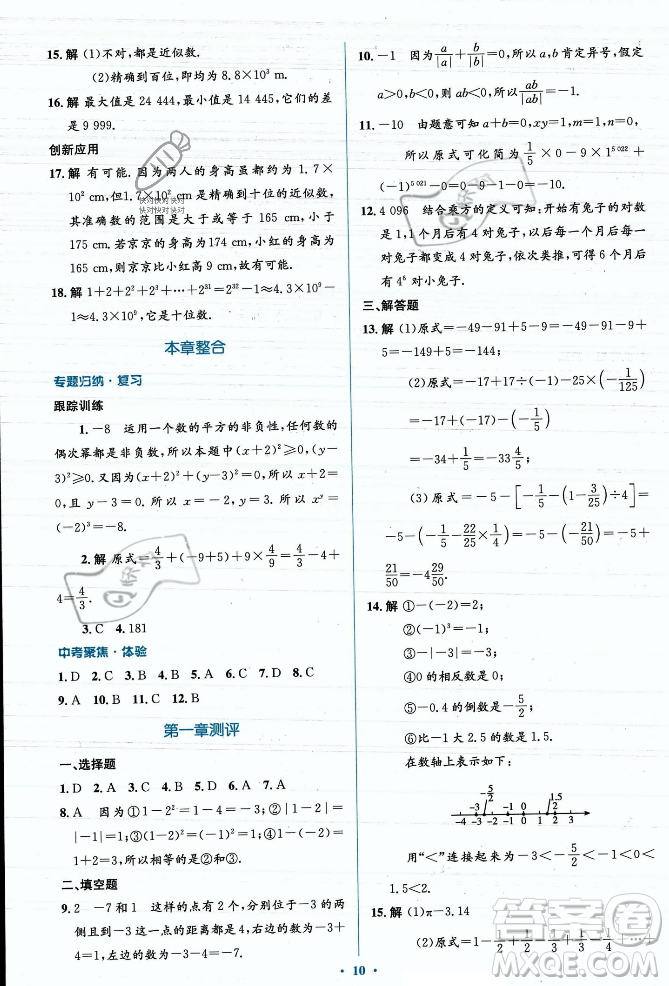 15. 解 (1)不对,都是近似数.
(2)精确到百位,即均为 8.8×10³ m.
16. 解 最大值是 24 444,最小值是 14 445,它们的差
是 9 999.
创新应用
17. 解 有可能. 因为两人的身高虽都为 1.7×
10² cm,但1.7×10² cm是精确到十位的近似数,
其准确数的范围是大于或等于 165 cm,小于
175 cm. 若京京的身高为 174 cm,小红的身高为
165 cm,则京京比小红高 9 cm,故有可能.
18. 解 1+2+2²+2³+…+2³¹=2³²-1≈4.3×10⁹
-1≈4.3×10⁹(粒).
本章整合
专题归纳·复习
跟踪训练
1. -8 运用一个数的平方的非负性,任何数的
偶次幂都是非负数,所以本题中(x+2)²⩾0,(y-
3)²⩾0. 又因为(x+2)²+(y-3)²=0,所以x+2=
0,y-3=0. 所以 x=-2,y=3. 所以 xʸ=
(-2)³=-8.
2. 解 原式=4/3+(-9+5)+9×4/9=4/3-4+
4=4/3.
3. C 4. 181
中考聚焦·体验
1. D 2. C 3. C 4. B 5. D 6. B 7. A 8. B
9. A 10. B 11. C 12. A
第一章测评
一、选择题
1. D 2. D 3. A 4. C 5. D 6. A 7. A
8. A 因为①1-2²=1-4=-3;②|1-2|=
|-1|=1;③(1-2)²=(-1)²=1;④1-(-2)=
1+2=3,所以②=③<④.
二、填空题
9. 2 -7和1 这样的点有2个,它们在-3的两
侧且到-3的距离都是4,右边的数为-3+
4=1,左边的数为-3-4=-7.
10. -1 因为a/|a|+b/|b|=0,所以a,b肯定异号,假定
a>0,b<0,则ab<0,所以ab/|ab|=-1.
11. -10 由题意可知 a+b=0,xy=1,m=1,n=0,
所以原式可化简为1/5×0-9×1⁵ ⁰²²+
(-1)⁵ ⁰²¹-0=0-9+(-1)-0=-10.
12. 4 096 结合乘方的定义可知:开始有兔子的对数
是1,1个月后有4对兔子,以后每一个月后每一
对兔子都变成4对兔子,依次类推,可得6个月后
有4⁶对小兔子.
三、解答题
13. 解 (1)原式=-49-91+5-9=-149+
5=-149+5=-144.
(2)原式=-17+17÷(-1)-25×(-1/125)
=-17-17-(-1/5)
=-34+1/5=-33 4/5.
(3)原式=-5-[-1/5-(1-3/25)÷4]=
-5-(-1/5-22/25×1/4)=-5-(-21/50)=-5+
21/50=-4 29/50.
14. 解 ①-(-2)=2;
②(-1)³=-1;
③-|-3|=-3;
④0的相反数是0;
⑤-0.4的倒数是-5/2;
⑥比-1大2.5的数是1.5.
在数轴上表示如下:
-5/2 1.5
-3 -1 0 2
-4 -3 -2 -1 0 1 2 3 4
用“<”连接起来为-3<-5/2<-1<0<
1.5<2.
15. 解 (1)π-3.14
(2)原式=1-1/2+1/2-
10
快对 快对 快对
快对 快对 快对
快对
答案卷
MXQE.COM